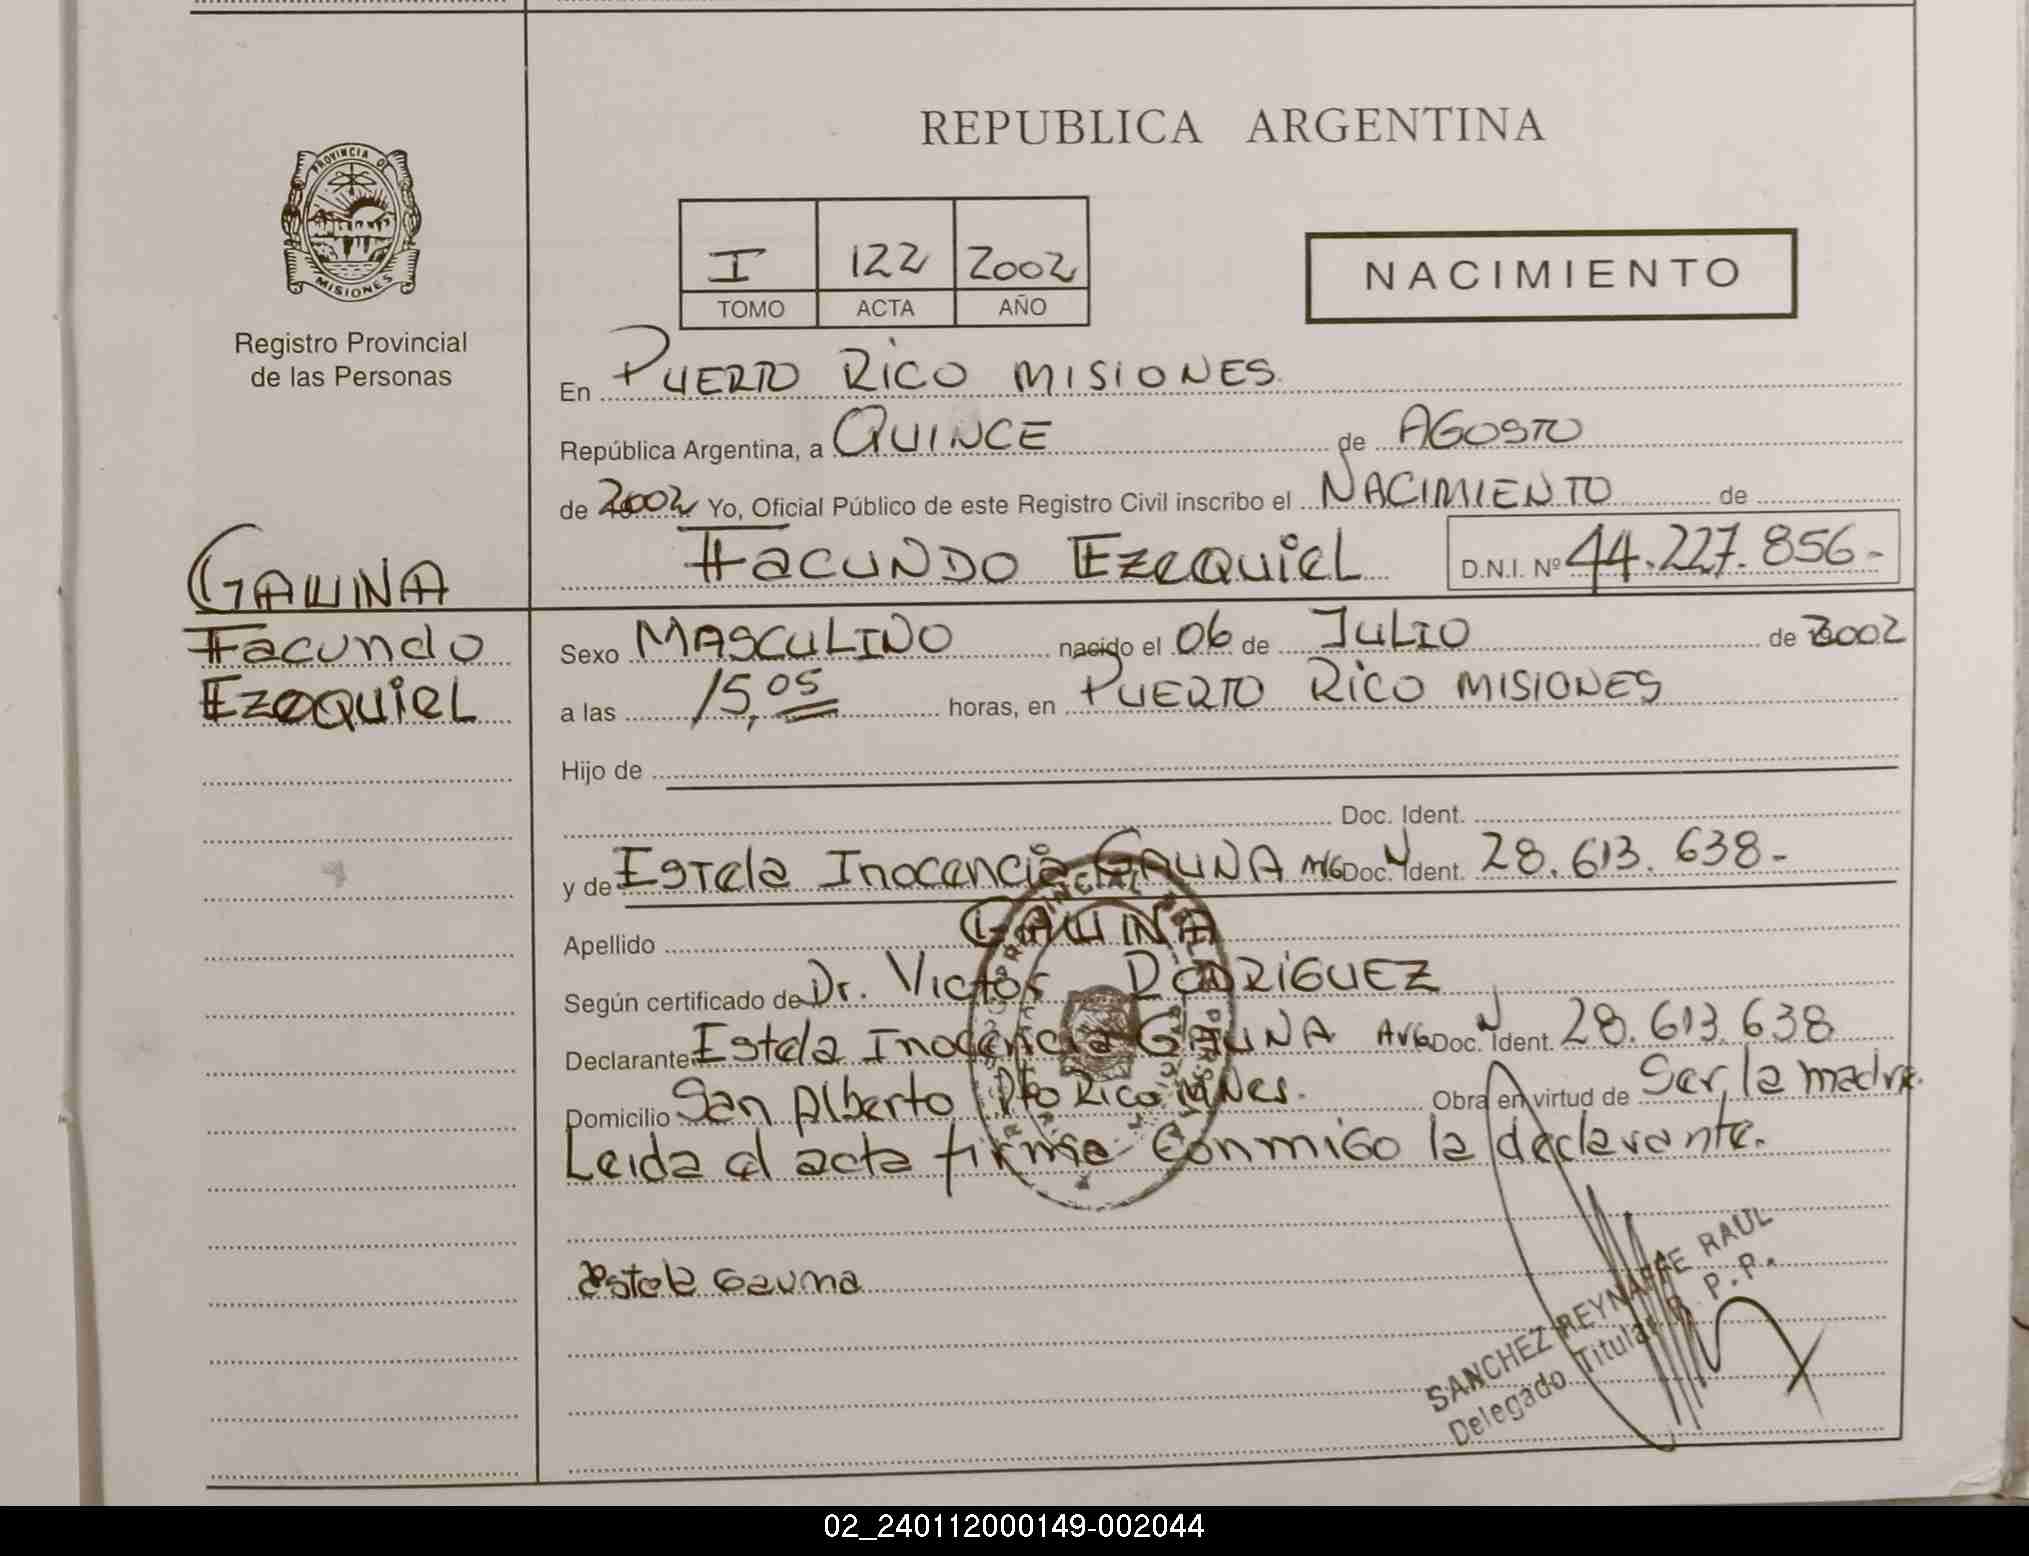 REPUBLICA ARGENTINA
PROVINCIA DE
MISIONES
Registro Provincial
de las Personas
I 122 2002
TOMO ACTA AÑO
NACIMIENTO
En PUERTO RICO MISIONES
República Argentina, a QUINCE de AGOSTO
de 2002 Yo, Oficial Público de este Registro Civil inscribo el NACIMIENTO de
FACUNDO EZEQUIEL D.N.I. Nº 44.227.856-
GAUNA
Facundo
EZEQUIEL
Sexo MASCULINO nacido el 06 de JULIO de 2002
a las 15,05 horas, en PUERTO RICO MISIONES
Hijo de
Doc. Ident.
y de Estela Inocencia GAUNA Doc. Ident. 28.613.638-
Apellido GAUNA
Según certificado de Dr. Victor RODRIGUEZ
Declarante Estela Inocencia GAUNA Doc. Ident. 28.613.638
Domicilio San Alberto Pto Rico Mnes. Obra en virtud de Ser la madre.
Leida el acta firma conmigo la declarante.
estela Gauna
SANCHEZ REYNAFFE RAUL
Delegado Titular R. P. P.
02_240112000149-002044